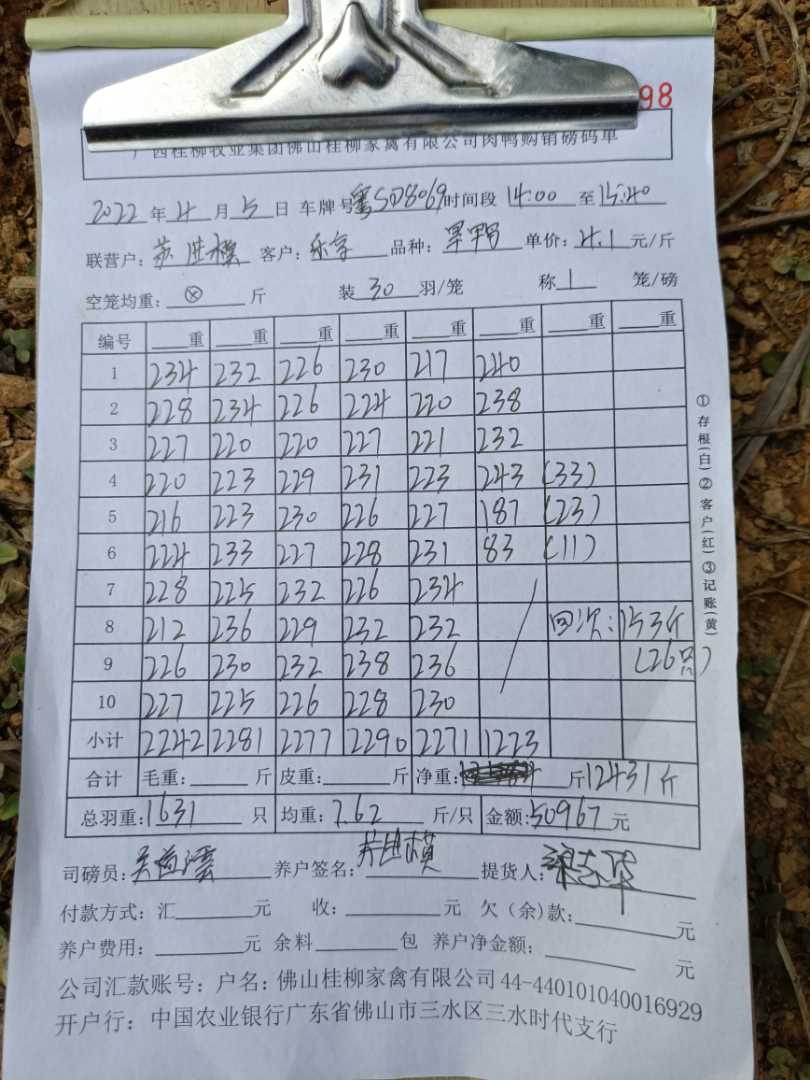 98
广西桂柳牧业集团佛山桂柳家禽有限公司肉鸭购销磅码单
2022年4月5日 车牌号粤SD8069时间段 14:00 至 15:40
联营户: 客户: 品种: 单价: 4.1 元/斤
空笼均重: ⊗ 斤 装 30 羽/笼 称 1 笼/磅
编号 重 重 重 重 重 重 重 重
1 234 232 226 230 217 240
2 228 234 226 224 220 238
3 227 220 220 227 221 232
4 220 223 229 231 223 243 (33)
5 216 223 230 226 227 187 (23)
6 224 233 227 228 231 83 (11)
7 228 225 232 226 234
8 212 236 229 232 232 回次:153斤
9 226 230 232 238 236 (26只)
10 227 225 226 228 230
小计 2242 2281 2277 2290 2271 1223
合计 毛重: 斤 皮重: 斤 净重: 斤 12431斤
总羽重: 1631 只 均重: 7.62 斤/只 金额: 50967 元
司磅员: 养户签名: 提货人:
付款方式: 汇 元 收: 元 欠(余)款: 元
养户费用: 元 余料 包 养户净金额: 元
公司汇款账号: 户名: 佛山桂柳家禽有限公司 44-440101040016929
开户行: 中国农业银行广东省佛山市三水区三水时代支行
①存根(白)②客户(红)③记账(黄)